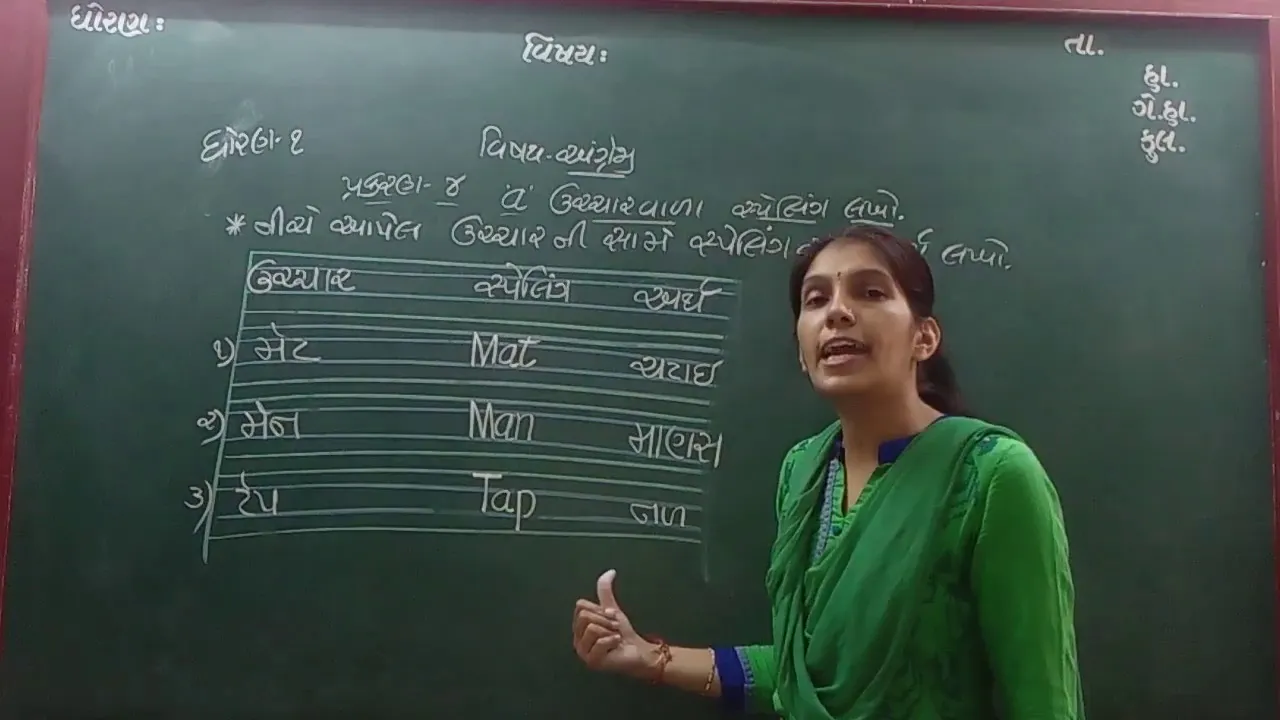 ધોરણ:
વિષય:
તા.
હા.
ગે.હા.
કુલ.
ધોરણ-૧ વિષય-અંગ્રેજી
પ્રકરણ-૪ 'a' ઉચ્ચારવાળા સ્પેલિંગ લખો.
* નીચે આપેલ ઉચ્ચાર ની સામે સ્પેલિંગ લખો.
ઉચ્ચાર સ્પેલિંગ અર્થ
૧) મેટ Mat ચટાઈ
૨) મેન Man માણસ
૩) ટેપ Tap નળ